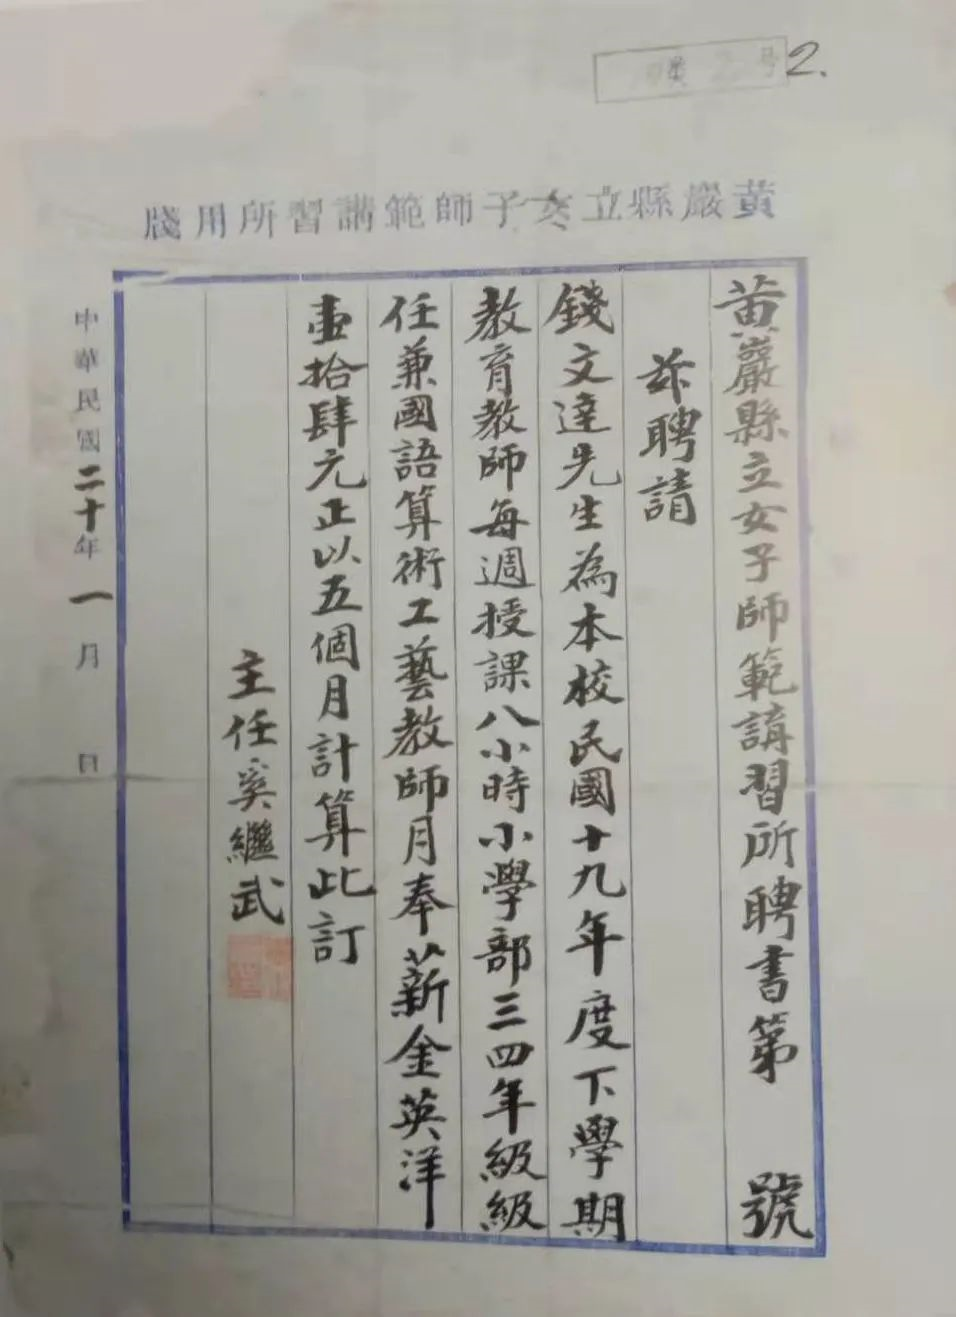 2.
黃巖縣立女子師範講習所用牋
黃巖縣立女子師範講習所聘書第 號
茲聘請
錢文達先生為本校民國十九年度下學期
教育教師每週授課八小時小學部三四年級級
任兼國語算術工藝教師月奉薪金英洋
壹拾肆元正以五個月計算此訂
主任奚繼武
中華民國二十年一月 日